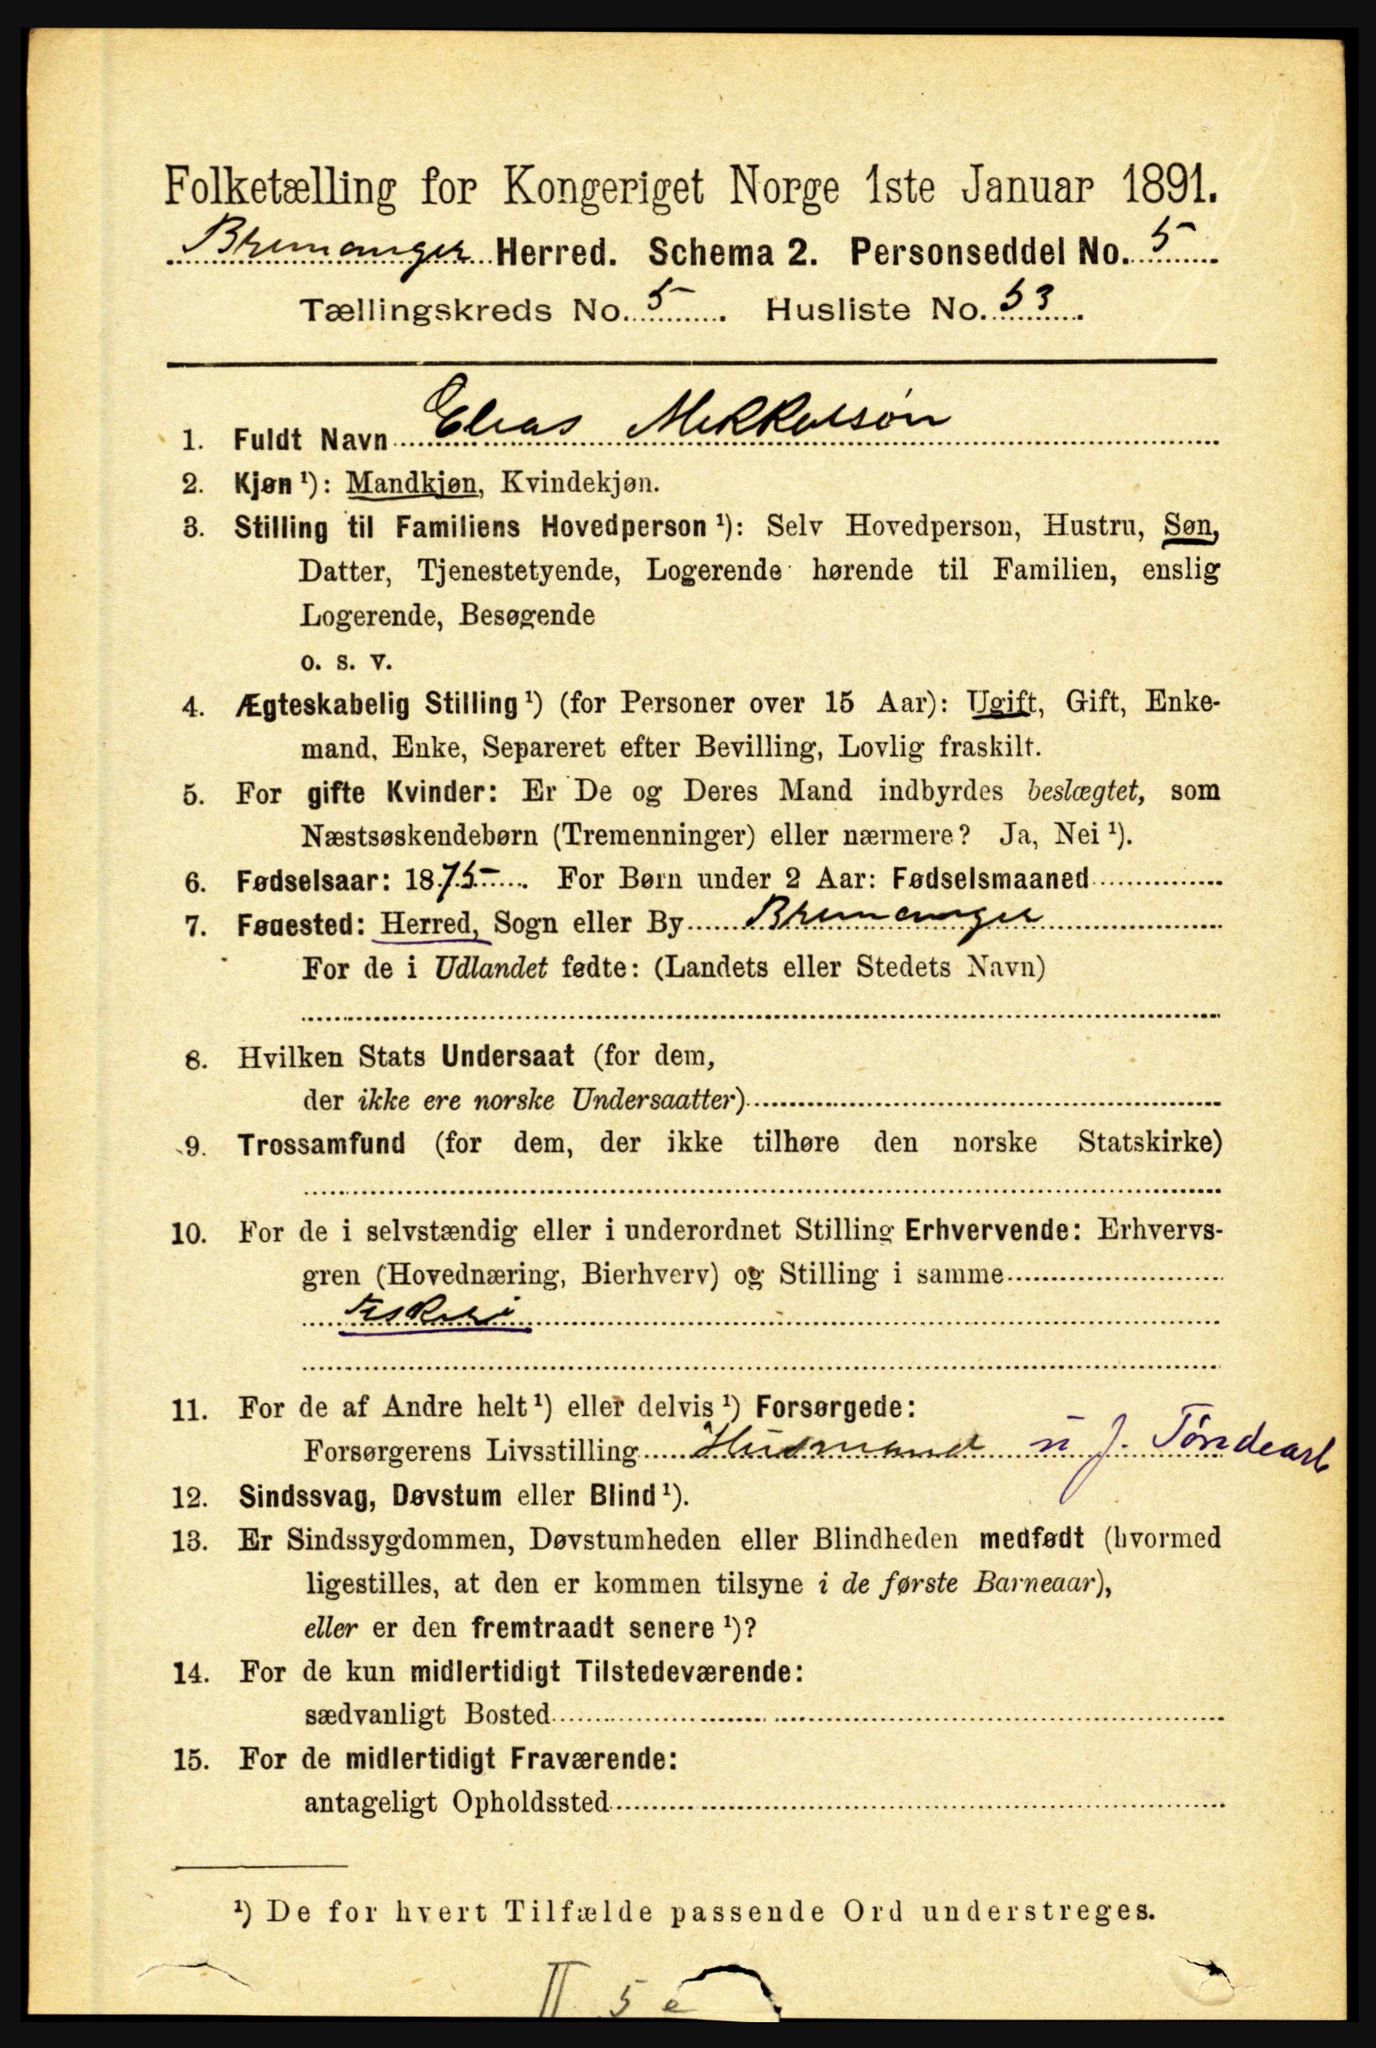 Folketælling for Kongeriget Norge 1ste Januar 1891.
Bremanger Herred. Schema 2. Personseddel No. 5
Tællingskreds No. 5. Husliste No. 53.
1. Fuldt Navn Elias Mikkelsøn
2. Kjøn ¹): Mandkjøn, Kvindekjøn.
3. Stilling til Familiens Hovedperson ¹): Selv Hovedperson, Hustru, Søn,
Datter, Tjenestetyende, Logerende hørende til Familien, enslig
Logerende, Besøgende
o. s. v.
4. Ægteskabelig Stilling ¹) (for Personer over 15 Aar): Ugift, Gift, Enke-
mand, Enke, Separeret efter Bevilling, Lovlig fraskilt.
5. For gifte Kvinder: Er De og Deres Mand indbyrdes beslægtet, som
Næstsøskendebørn (Tremenninger) eller nærmere? Ja, Nei ¹).
6. Fødselsaar: 1875. For Børn under 2 Aar: Fødselsmaaned
7. Føuested: Herred, Sogn eller By Bremanger
For de i Udlandet fødte: (Landets eller Stedets Navn)
8. Hvilken Stats Undersaat (for dem,
der ikke ere norske Undersaatter)
9. Trossamfund (for dem, der ikke tilhøre den norske Statskirke)
10. For de i selvstændig eller i underordnet Stilling Erhvervende: Erhvervs-
gren (Hovednæring, Bierhverv) og Stilling i samme
Fiskeri
11. For de af Andre helt ¹) eller delvis ¹) Forsørgede:
Forsørgerens Livsstilling Husmand u j. Tøndearb
12. Sindssvag, Døvstum eller Blind ¹).
13. Er Sindssygdommen, Døvstumheden eller Blindheden medfødt (hvormed
ligestilles, at den er kommen tilsyne i de første Barneaar),
eller er den fremtraadt senere ¹)?
14. For de kun midlertidigt Tilstedeværende:
sædvanligt Bosted
15. For de midlertidigt Fraværende:
antageligt Opholdssted
¹) De for hvert Tilfælde passende Ord understreges.
II 5 e